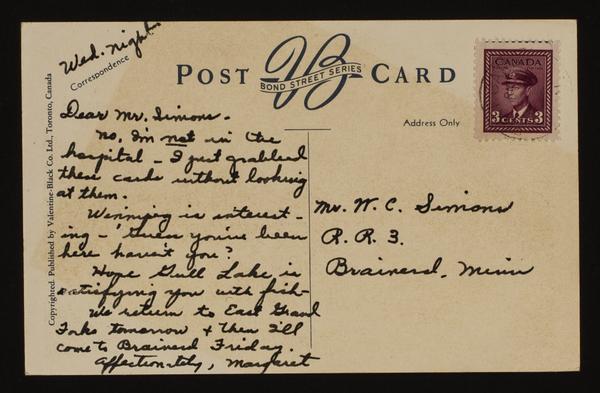 Wed. night
Correspondence
POST CARD
VB
BOND STREET SERIES
Address Only
CANADA
3 CENTS 3
Copyrighted. Published by Valentine-Black Co. Ltd., Toronto, Canada
Dear Mr. Simons -
No, I'm not in the
hospital - I just grabbed
these cards without looking
at them.
Winnipeg is interest-
ing - 'Guess you've been
here haven't you?
Hope Gull Lake is
satisfying you with fish-
We return to East Grand
Forks tomorrow + then I'll
come to Brainerd Friday.
Affectionately, Margaret
Mr. W. C. Simons
R. R. 3.
Brainerd, Minn